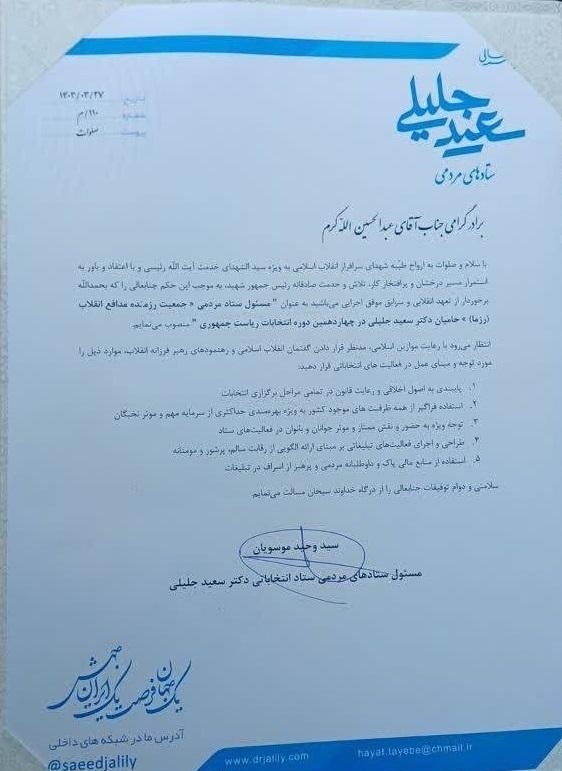 سعید جلیلی
ستادهای مردمی
تاریخ ۱۴۰۳/۰۳/۲۷
شماره ۱۱۰/م
پیوست صلوات
برادر گرامی جناب آقای عبدالحسین الله کرم
با سلام و صلوات به ارواح طیبه شهدای سرافراز انقلاب اسلامی به ویژه سید الشهدای خدمت آیت الله رئیسی و با اعتقاد و باور به
استمرار مسیر درخشان و پرافتخار کار، تلاش و خدمت صادقانه رئیس جمهور شهید، به موجب این حکم جنابعالی را که بحمدالله
برخوردار از تعهد انقلابی و سوابق موفق اجرایی می‌باشید به عنوان " مسئول ستاد مردمی « جمعیت رزمنده مدافع انقلاب
(رزما) » حامیان دکتر سعید جلیلی در چهاردهمین دوره انتخابات ریاست جمهوری " منصوب می‌نمایم.
انتظار می‌رود با رعایت موازین اسلامی، مدنظر قرار دادن گفتمان انقلاب اسلامی و رهنمودهای رهبر فرزانه انقلاب، موارد ذیل را
مورد توجه و مبنای عمل در فعالیت های انتخاباتی قرار دهید:
۱. پایبندی به اصول اخلاقی و رعایت قانون در تمامی مراحل برگزاری انتخابات
۲. استفاده فراگیر از همه ظرفیت های موجود کشور به ویژه بهره‌مندی حداکثری از سرمایه مهم و موثر نخبگان
۳. توجه ویژه به حضور و نقش ممتاز و موثر جوانان و بانوان در فعالیت‌های ستاد
۴. طراحی و اجرای فعالیت‌های تبلیغاتی بر مبنای ارائه الگویی از رقابت سالم، پرشور و مومنانه
۵. استفاده از منابع مالی پاک و داوطلبانه مردمی و پرهیز از اسراف در تبلیغات
سلامتی و دوام توفیقات جنابعالی را از درگاه خداوند سبحان مسالت می‌نمایم
سید وحید موسویان
مسئول ستادهای مردمی ستاد انتخاباتی دکتر سعید جلیلی
یک جهان فرصت یک ایران جهش
آدرس ما در شبکه های داخلی
@saeedjalily
www.drjalily.com
hayat.tayebe@chmail.ir